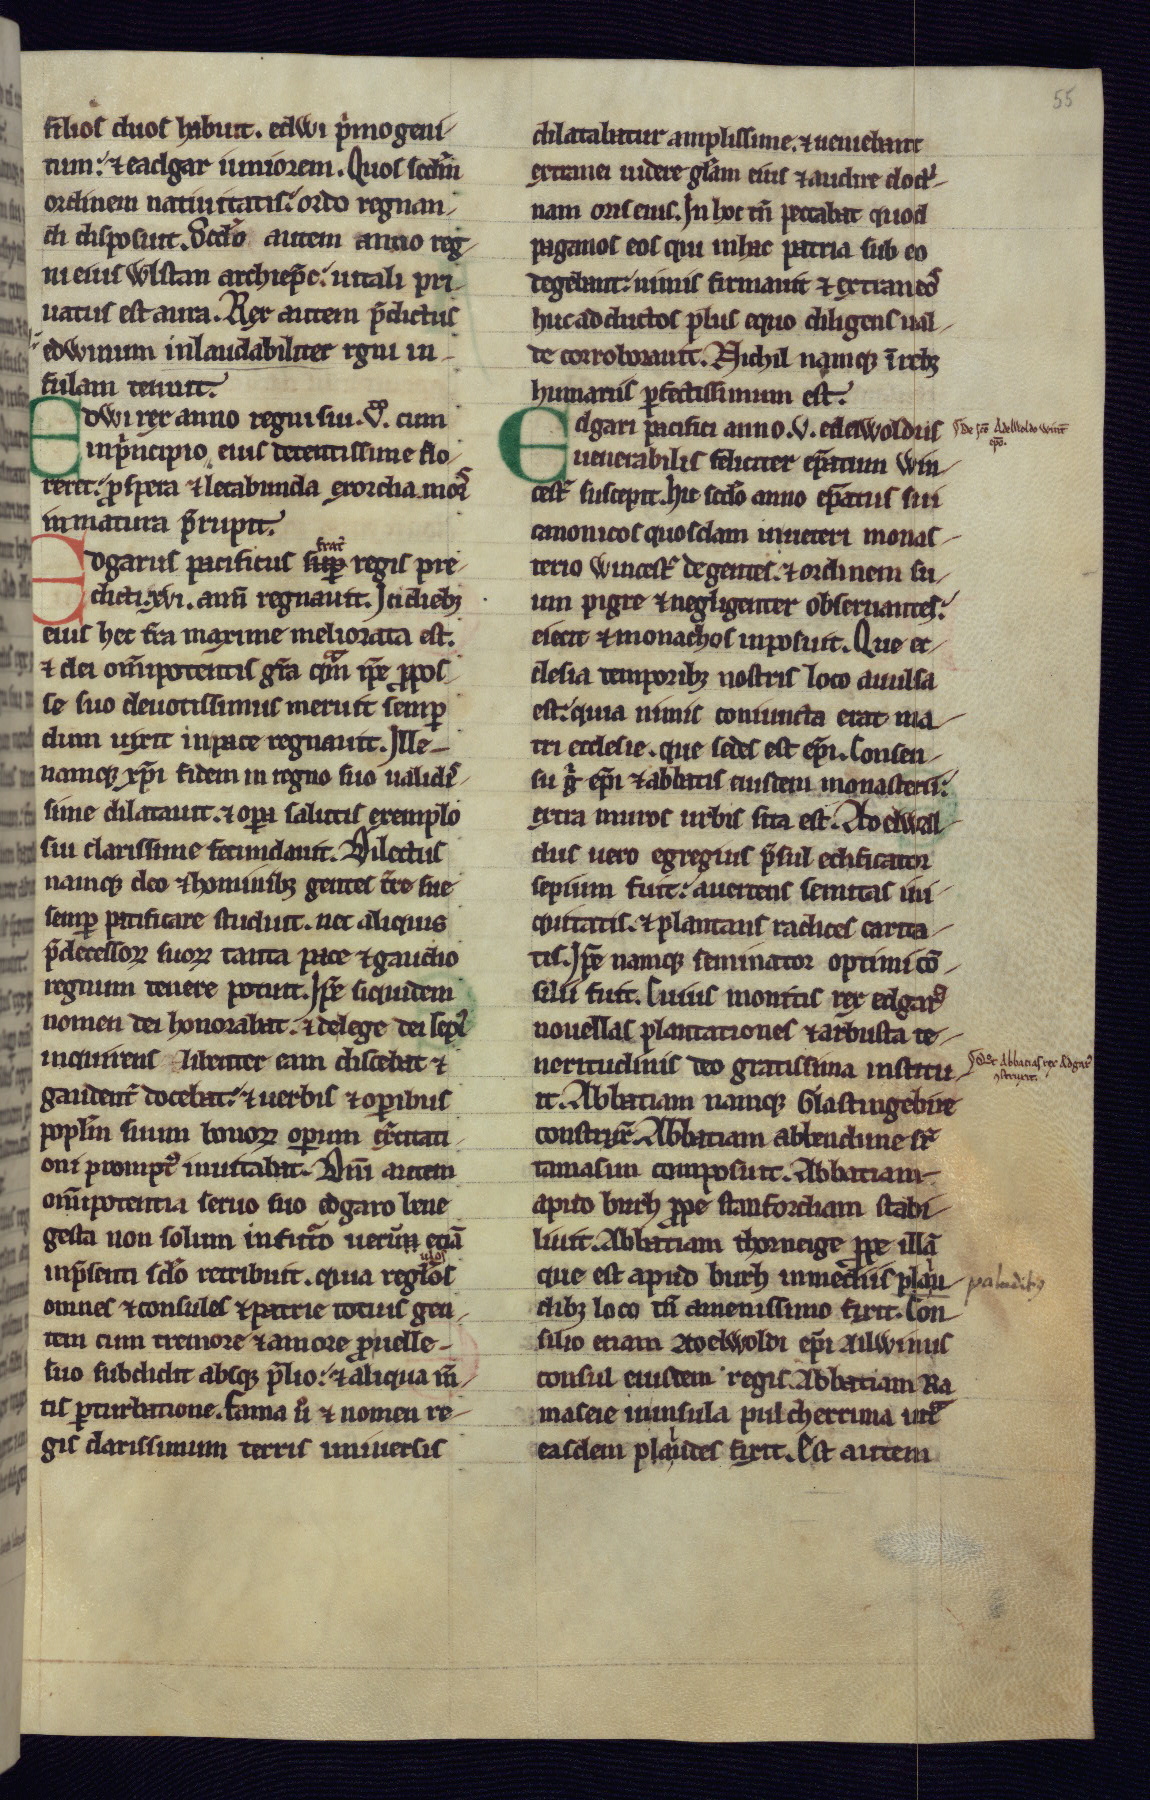 55
filios duos habuit. edwi p̄mogeni-
tum: & eadgar iuniorem. Quos scdm̄
ordinem natiuitatis: ordo regnan-
di disposuit. Scd̄o autem anno reg-
ni eius wlstan archiep̄c: uitali pri-
uatus est aura. Rex autem p̄dictus
edwinum inlaudabiliter regni in-
fulam tenuit.
Edwi rex anno regni sui .v̊. cum
in p̄ncipio eius decentissime flo-
reret: ꝓspera & letabunda exordia mors
inmatura p̄rupit.
frat̄
Edgarus pacificus sup̱ regis pre-
dicti .xvi. ann̄ regnauit. In diebꝫ
eius hec t̄ra maxime meliorata est.
& dei om̄ipotentis gr̄a qm̄ ip̄e ꝓ pos-
se suo deuotissimus meruit semꝑ
dum uixit in pace regnauit. Ille-
namqꝫ xp̄i fidem in regno suo ualidis-
sime dilatauit. & oꝑa salutis exemplo
sui clarissime fecundauit. Dilectus
namqꝫ deo & hominibꝫ gentes t̄re sue
semꝑ pacificare studuit. nec aliquis
p̄decessorꝝ suorꝝ tanta pace & gaudio
regnum tenere potuit. Ip̄e siquidem
nomen dei honorabat. & de lege dei sepi᷒
inquirens libenter eam discebat &
gaudent᷒ docebat: & uerbis & oꝑibus
popl̄m suum bonorꝝ oꝑum ex̄citati-
oni prompt᷒ inuitabat. Dn̄i autem
om̄ipotentia seruo suo edgaro bene
gesta non solum in futuro uerum etiā
ulos
in p̄senti scl̄o retribuit. quia reglos
omnes & consules & patrie totius gen-
tem cum tremore & amore ꝓ uelle-
suo subdidit absqꝫ p̄lio: & aliqua m̄-
tis ꝑturbatione. Fama u̓ & nomen re-
gis clarissimum terris uniuersis
dilatabatur amplissime. & ueniebant
extranei uidere gl̄am eius & audire doct᷒-
nam oris eius. In hoc tn̄ peccabat quod
paganos eos qui in hac patria sub eo
degebant: nimis firmauit & extraneos
huc adductos plus equo diligens ual-
de corroborauit. Nichil namqꝫ ī rebꝫ
humanis ꝑfectissimum est.
Edgari pacifici anno .v. edelwoldus
uenerabilis feliciter ep̄atum win-
cest᷒ suscepit. Hic scd̄o anno ep̄atus sui
canonicos quosdam in ueteri monas-
terio wincest᷒ degentes. & ordinem su-
um pigre & negligenter obseruantes:
eiecit & monachos inposuit. Que ec-
clesia temporibꝫ nostris loco auulsa
est: quia nimis coniuncta erat ma-
tri ecclesie. que sedes est ep̄i. Consen-
su g̓ ep̄i & abbatis eiusdem monasterii:
extra muros urbis sita est. Adelwal-
dus uero egregius p̄sul edificator
sepium fuit: auertens semitas ini-
quitatis. & plantans radices carita-
tis. Ip̄e namqꝫ seminator optimi cō-
silii fuit. Cuius monitis rex edgarꝰ
nouellas plantationes & arbusta te-
neritudinis deo gratissima institu-
it. Abbatiam namqꝫ Glastingebirie
construx̄. Abbatiam abbendune s᷒
tamasim composuit. Abbatiam
apud burh ꝓpe stanfordiam stabi-
liuit. Abbatiam thorneige ꝓpe illā
que est apud burh in mediis plau-
dibꝫ loco tn̄ amenissimo fixit. Con-
silio etiam adelwoldi ep̄i ailwinus
consul eiusdem regis. Abbatiam Ra-
maseie in insula pulcherrima int᷒
easdem plaudes fixit. Est autem
de sc̄o Adelwoldo wint̄
ep̄o.
qd̄ Abbatias rex Edgar᷒
paludibꝫ